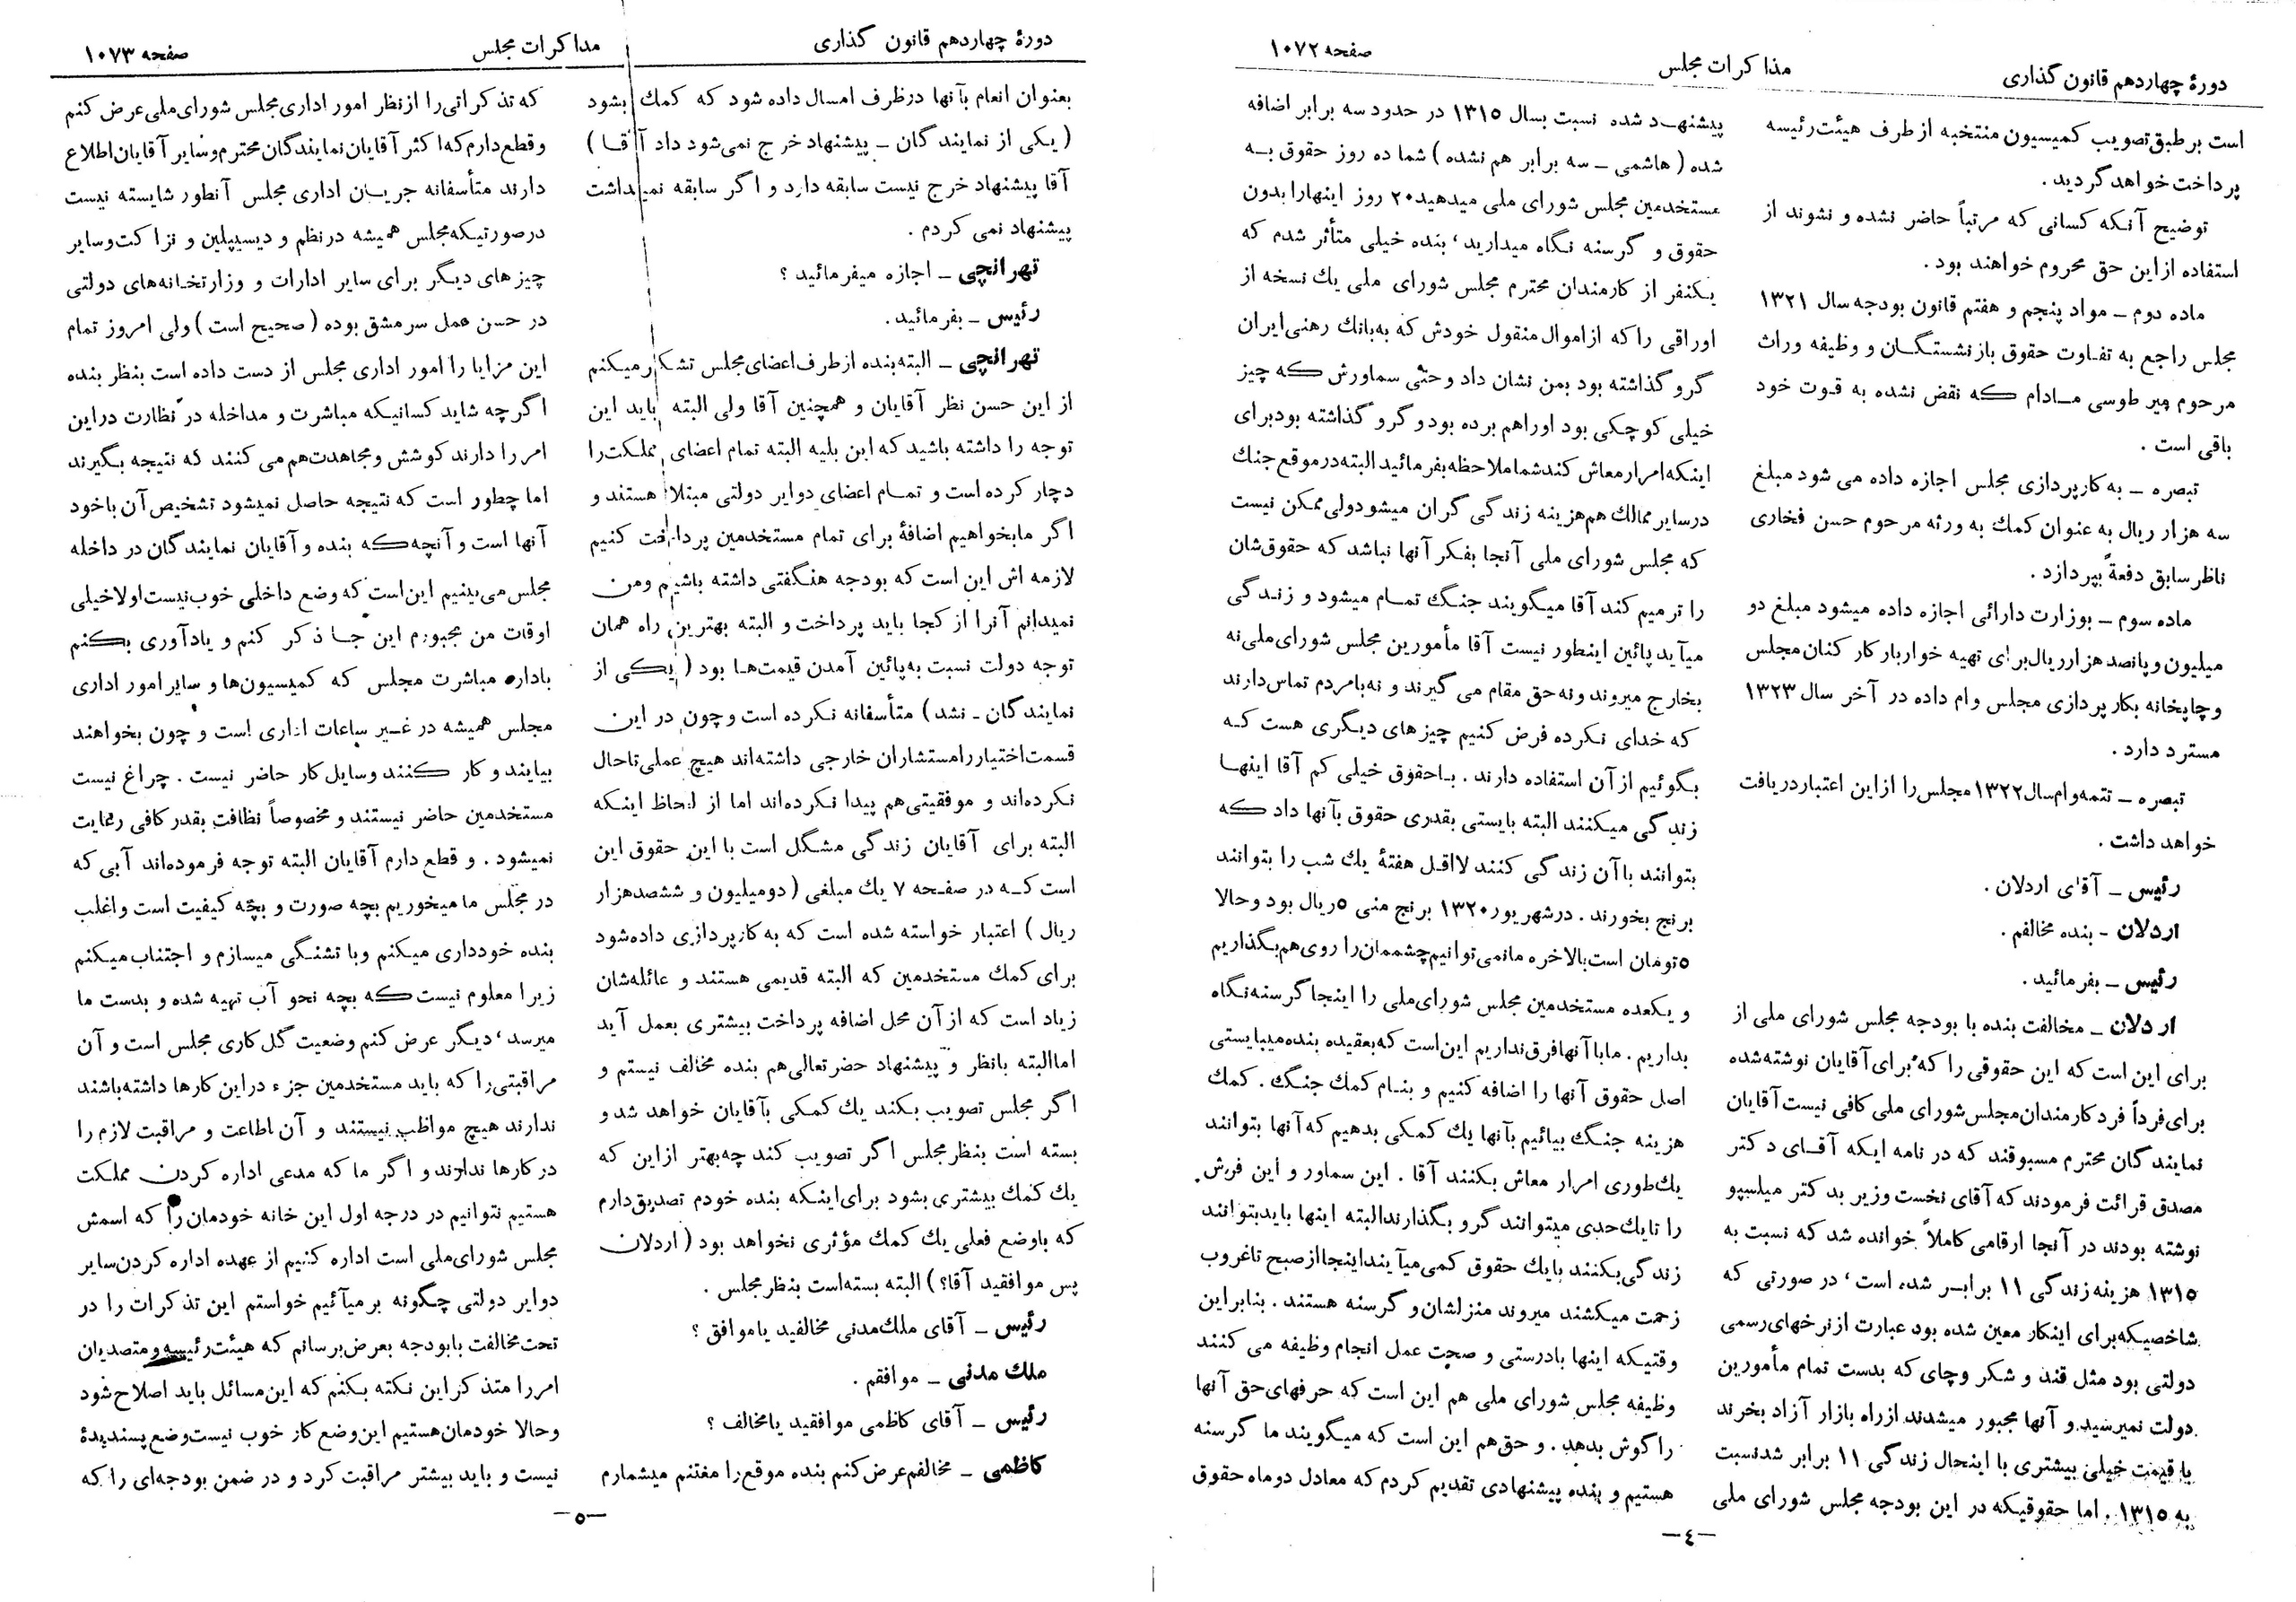 دورۀ چهاردهم قانون گذاری
مذاکرات مجلس
صفحه ۱۰۷۲
است برطبق تصویب کمیسیون منتخبه از طرف هیئت رئیسه
پرداخت خواهد گردید .
توضیح آنکه کسانی که مرتباً حاضر نشده و نشوند از
استفاده از این حق محروم خواهند بود .
ماده دوم ـ مواد پنجم و هفتم قانون بودجه سال ۱۳۲۱
مجلس راجع به تفاوت حقوق بازنشستگان و وظیفه وراث
مرحوم میر طوسی مادام که نقض نشده به قوت خود
باقی است .
تبصره ـ به کارپردازی مجلس اجازه داده می شود مبلغ
سه هزار ریال به عنوان کمک به ورثه مرحوم حسن فخاری
ناظر سابق دفعةً بپردازد .
ماده سوم ـ بوزارت دارائی اجازه داده میشود مبلغ دو
میلیون و پانصد هزار ریال برای تهیه خواربار کارکنان مجلس
و چاپخانه بکارپردازی مجلس وام داده در آخر سال ۱۳۲۳
مسترد دارد .
تبصره ـ تتمه وام سال ۱۳۲۲ مجلس را از این اعتبار دریافت
خواهد داشت .
رئیس ـ آقای اردلان .
اردلان ـ بنده مخالفم .
رئیس ـ بفرمائید .
اردلان ـ مخالفت بنده با بودجه مجلس شورای ملی از
برای این است که این حقوقی را که برای آقایان نوشته شده
برای فرداً فرد کارمندان مجلس شورای ملی کافی نیست آقایان
نمایندگان محترم مسبوقند که در نامه ایکه آقای دکتر
مصدق قرائت فرمودند که آقای نخست وزیر بدکتر میلسپو
نوشته بودند در آنجا ارقامی کاملاً خوانده شد که نسبت به
۱۳۱۵ هزینه زندگی ۱۱ برابر شده است ، در صورتی که
شاخصیکه برای اینکار معین شده بود عبارت از نرخهای رسمی
دولتی بود مثل قند و شکر و چای که بدست تمام مأمورین
دولت نمیرسید و آنها مجبور میشدند از راه بازار آزاد بخرند
با قیمت خیلی بیشتری با اینحال زندگی ۱۱ برابر شد نسبت
به ۱۳۱۵ . اما حقوقیکه در این بودجه مجلس شورای ملی
پیشنهاد شده نسبت بسال ۱۳۱۵ در حدود سه برابر اضافه
شده ( هاشمی ـ سه برابر هم نشده ) شما ده روز حقوق به
مستخدمین مجلس شورای ملی میدهید ۲۰ روز اینها را بدون
حقوق و گرسنه نگاه میدارید ، بنده خیلی متأثر شدم که
یکنفر از کارمندان محترم مجلس شورای ملی یك نسخه از
اوراقی را که از اموال منقول خودش که به بانك رهنی ایران
گرو گذاشته بود بمن نشان داد و حتی سماورش که چیز
خیلی کوچکی بود اوراهم برده بود و گرو گذاشته بود برای
اینکه امرار معاش کند شما ملاحظه بفرمائید البته در موقع جنك
در سایر ممالك هم هزینه زندگی گران میشود ولی ممکن نیست
که مجلس شورای ملی آنجا بفکر آنها نباشد که حقوقشان
را ترمیم کند آقا میگویند جنگ تمام میشود و زندگی
میآید پائین اینطور نیست آقا مأمورین مجلس شورای ملی نه
بخارج میروند و نه حق مقام می گیرند و نه بامردم تماس دارند
که خدای نکرده فرض کنیم چیز های دیگری هست که
بگوئیم از آن استفاده دارند . با حقوق خیلی کم آقا اینها
زندگی میکنند البته بایستی بقدری حقوق بآنها داد که
بتوانند با آن زندگی کنند لااقل هفتۀ یك شب را بتوانند
برنج بخورند . در شهریور ۱۳۲۰ برنج منی ۵ ریال بود و حالا
۵ تومان است بالاخره ما نمی توانیم چشممان را روی هم بگذاریم
و یکعده مستخدمین مجلس شورای ملی را اینجا گرسنه نگاه
بداریم . ما با آنها فرق نداریم این است که بعقیده بنده میبایستی
اصل حقوق آنها را اضافه کنیم و بنام کمك جنگ . کمك
هزینه جنگ بیائیم بآنها یك کمکی بدهیم که آنها بتوانند
یك طوری امرار معاش بکنند آقا . این سماور و این فرش
را تا یك حدی میتوانند گرو بگذارند البته اینها باید بتوانند
زندگی بکنند با یك حقوق کمی میآیند اینجا از صبح تا غروب
زحمت میکشند میروند منزلشان و گرسنه هستند . بنابراین
وقتیکه اینها بادرستی و صحت عمل انجام وظیفه می کنند
وظیفه مجلس شورای ملی هم این است که حرفهای حق آنها
را گوش بدهد . و حق هم این است که میگویند ما گرسنه
هستیم و بنده پیشنهادی تقدیم کردم که معادل دو ماه حقوق
ـ۴ـ
دورۀ چهاردهم قانون گذاری
مذاکرات مجلس
صفحه ۱۰۷۳
بعنوان انعام بآنها در ظرف امسال داده شود که کمك بشود
( یکی از نمایندگان ـ پیشنهاد خرج نمی شود داد آقا )
آقا پیشنهاد خرج نیست سابقه دارد و اگر سابقه نمیداشت
پیشنهاد نمی کردم .
تهرانچی ـ اجازه میفرمائید ؟
رئیس ـ بفرمائید .
تهرانچی ـ البته بنده از طرف اعضای مجلس تشکر میکنم
از این حسن نظر آقایان و همچنین آقا ولی البته باید این
توجه را داشته باشید که این بلیه البته تمام اعضای مملکت را
دچار کرده است و تمام اعضای دوایر دولتی مبتلا هستند و
اگر ما بخواهیم اضافۀ برای تمام مستخدمین پرداخت کنیم
لازمه اش این است که بودجه هنگفتی داشته باشیم و من
نمیدانم آنرا از کجا باید پرداخت و البته بهترین راه همان
توجه دولت نسبت به پائین آمدن قیمت‌ها بود ( یکی از
نمایندگان ـ نشد ) متأسفانه نکرده است و چون در این
قسمت اختیار را مستشاران خارجی داشته‌اند هیچ عملی تا حال
نکرده‌اند و موفقیتی هم پیدا نکرده‌اند اما از لحاظ اینکه
البته برای آقایان زندگی مشگل است با این حقوق این
است که در صفحه ۷ یك مبلغی ( دو میلیون و ششصد هزار
ریال ) اعتبار خواسته شده است که به کارپردازی داده شود
برای کمك مستخدمین که البته قدیمی هستند و عائله‌شان
زیاد است که از آن محل اضافه پرداخت بیشتری بعمل آید
اما البته بانظر و پیشنهاد حضرتعالی هم بنده مخالف نیستم و
اگر مجلس تصویب بکند یك کمکی بآقایان خواهد شد و
بسته است بنظر مجلس اگر تصویب کند چه بهتر از این که
یك کمك بیشتری بشود برای اینکه بنده خودم تصدیق دارم
که باوضع فعلی یك کمك مؤثری نخواهد بود ( اردلان
پس موافقید آقا؟ ) البته بسته است بنظر مجلس .
رئیس ـ آقای ملك مدنی مخالفید یا موافق ؟
ملك مدنی ـ موافقم .
رئیس ـ آقای کاظمی موافقید یا مخالف ؟
کاظمی ـ مخالفم عرض کنم بنده موقع را مغتنم میشمارم
که تذکراتی را از نظر امور اداری مجلس شورای ملی عرض کنم
و قطع دارم که اکثر آقایان نمایندگان محترم و سایر آقایان اطلاع
دارند متأسفانه جریان اداری مجلس آنطور شایسته نیست
در صورتیکه مجلس همیشه در نظم و دیسیپلین و نزاکت و سایر
چیز های دیگر برای سایر ادارات و وزارتخانه‌های دولتی
در حسن عمل سرمشق بوده ( صحیح است ) ولی امروز تمام
این مزایا را امور اداری مجلس از دست داده است بنظر بنده
اگر چه شاید کسانیکه مباشرت و مداخله در نظارت در این
امر را دارند کوشش و مجاهدت هم می کنند که نتیجه بگیرند
اما چطور است که نتیجه حاصل نمیشود تشخیص آن با خود
آنها است و آنچه که بنده و آقایان نمایندگان در داخله
مجلس می بینیم این است که وضع داخلی خوب نیست اولا خیلی
اوقات من مجبورم این جا ذکر کنم و یادآوری بکنم
باداره مباشرت مجلس که کمیسیون‌ها و سایر امور اداری
مجلس همیشه در غیر ساعات اداری است و چون بخواهند
بیایند و کار کنند وسایل کار حاضر نیست . چراغ نیست
مستخدمین حاضر نیستند و مخصوصاً نظافت بقدر کافی رعایت
نمیشود . و قطع دارم آقایان البته توجه فرموده‌اند آبی که
در مجلس ما میخوریم بچه صورت و بچه کیفیت است و اغلب
بنده خودداری میکنم و با تشنگی میسازم و اجتناب میکنم
زیرا معلوم نیست که بچه نحو آب تهیه شده و بدست ما
میرسد ، دیگر عرض کنم وضعیت گل کاری مجلس است و آن
مراقبتی را که باید مستخدمین جزء در این کارها داشته باشند
ندارند هیچ مواظب نیستند و آن اطاعت و مراقبت لازم را
در کارها ندارند و اگر ما که مدعی اداره کردن مملکت
هستیم نتوانیم در درجه اول این خانه خودمان را که اسمش
مجلس شورای ملی است اداره کنیم از عهده اداره کردن سایر
دوایر دولتی چگونه برمیآئیم خواستم این تذکرات را در
تحت مخالفت بابودجه بعرض برسانم که هیئت رئیسه و متصدیان
امر را متذکر این نکته بکنم که این مسائل باید اصلاح شود
و حالا خودمان هستیم این وضع کار خوب نیست وضع پسندیدۀ
نیست و باید بیشتر مراقبت کرد و در ضمن بودجه‌ای را که
ـ۵ـ